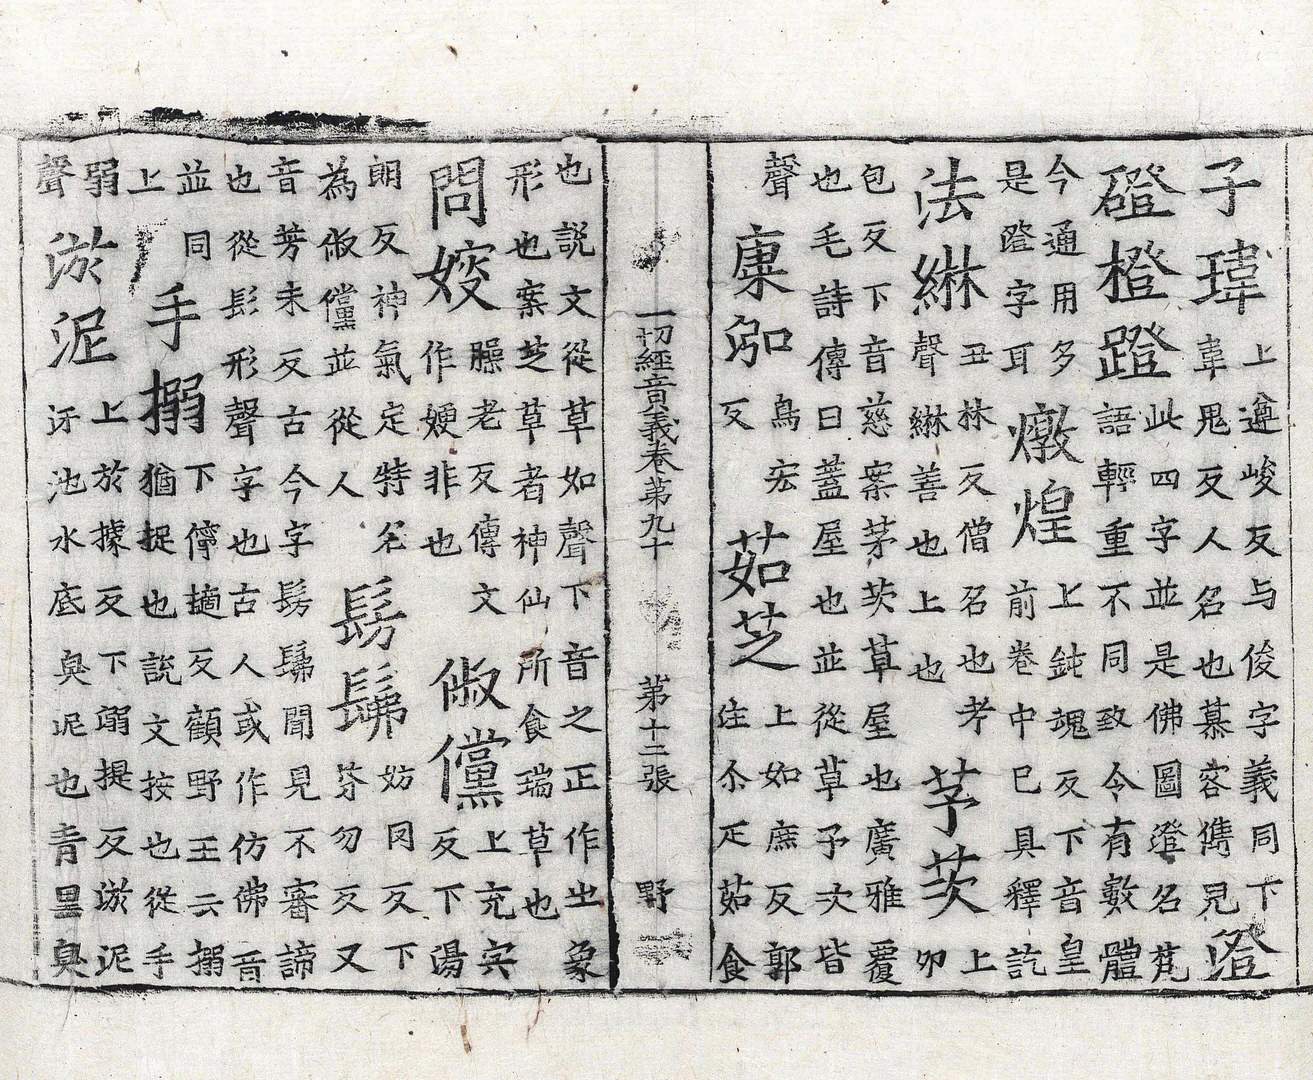 子瑋
上遵峻反与俊字義同下
韋鬼反人名也慕容儁見
澄
磴橙蹬
此四字並是佛圖澄名梵
語輕重不同致令有數體
今通用多
是蹬字耳
燉煌
上鈍魂反下音皇
前卷中已具釋訖
法綝
丑林反僧名也考
聲綝善也上也
茅茨
上
卯
包反下音慈案茅茨草屋也廣雅覆
也毛詩傳曰蓋屋也並從草予次皆
聲
鳥宏
反
茹芝
上如庶反郭
注尒疋茹食
一切經音義卷第九十 第十二張 野
也説文從草如聲下音之正作㞢象
形也案芝草者神仙所食瑞草也
問㛐
臊老反傳文
作㛮非也
俶儻
上充宍
反下湯
朗反神氣定特名
為俶儻並從人
髣髴
妨罔反下
芬勿反又
音芳未反古今字髣髴聞見不審諦
也從髟形聲字也古人或作仿佛音
並同
上
手搦
下儜擿反顧野王云搦
猶捉也説文按也從手
弱
聲
淤泥
上於據反下溺提反淤泥
汙池水底臭泥也青黑臭